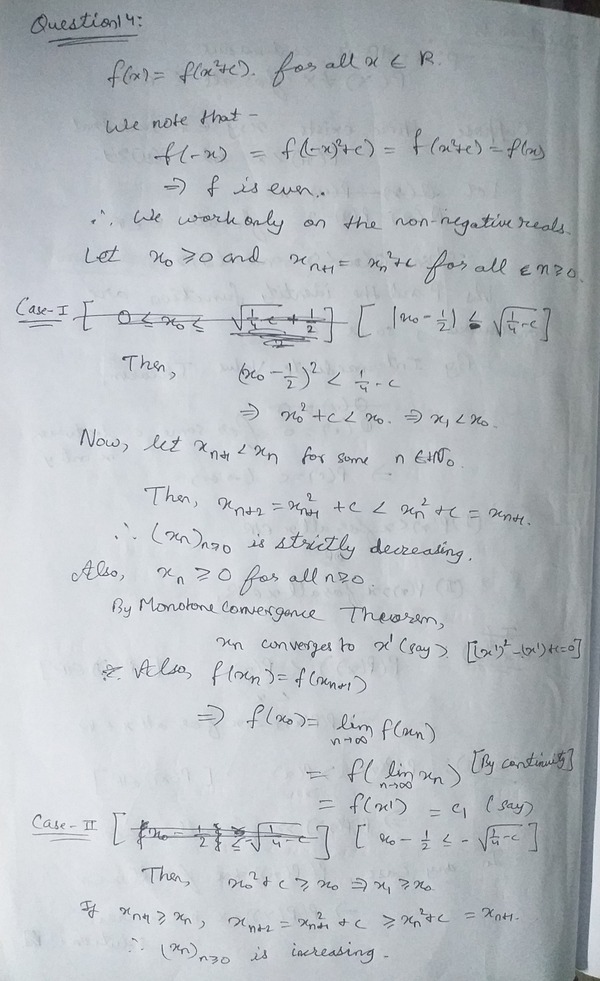 Question 14:
f(x) = f(x²+c). for all x ∈ R.
We note that –
f(-x) = f((-x)²+c) = f(x²+c) = f(x)
⇒ f is even.
∴ We work only on the non-negative reals.
Let x₀ ≥ 0 and xₙ₊₁ = xₙ²+c for all n ≥ 0.
Case-I [ 0 ≤ x₀ ≤ √(1/4 - c) + 1/2 ] [ |x₀ - 1/2| ≤ √(1/4 - c) ]
Then, (x₀ - 1/2)² < 1/4 - c
⇒ x₀² + c < x₀. ⇒ x₁ < x₀.
Now, let xₙ₊₁ < xₙ for some n ∈ ℕ₀.
Then, xₙ₊₂ = xₙ₊₁² + c < xₙ² + c = xₙ₊₁.
∴ (xₙ)ₙ≥₀ is strictly decreasing.
Also, xₙ ≥ 0 for all n ≥ 0.
By Monotone Convergence Theorem,
xₙ converges to x' (say). [(x')² - (x') + c = 0]
Also, f(xₙ) = f(xₙ₊₁)
⇒ f(x₀) = lim n→∞ f(xₙ)
= f( lim n→∞ xₙ) [By continuity]
= f(x') = c₁ (say)
Case-II [ x₀ - 1/2 ≤ -√(1/4 - c) ] [ x₀ - 1/2 ≤ -√(1/4 - c) ]
Then, x₀² + c ≥ x₀ ⇒ x₁ ≥ x₀
If xₙ₊₁ ≥ xₙ, xₙ₊₂ = xₙ₊₁² + c ≥ xₙ² + c = xₙ₊₁.
∴ (xₙ)ₙ≥₀ is increasing.